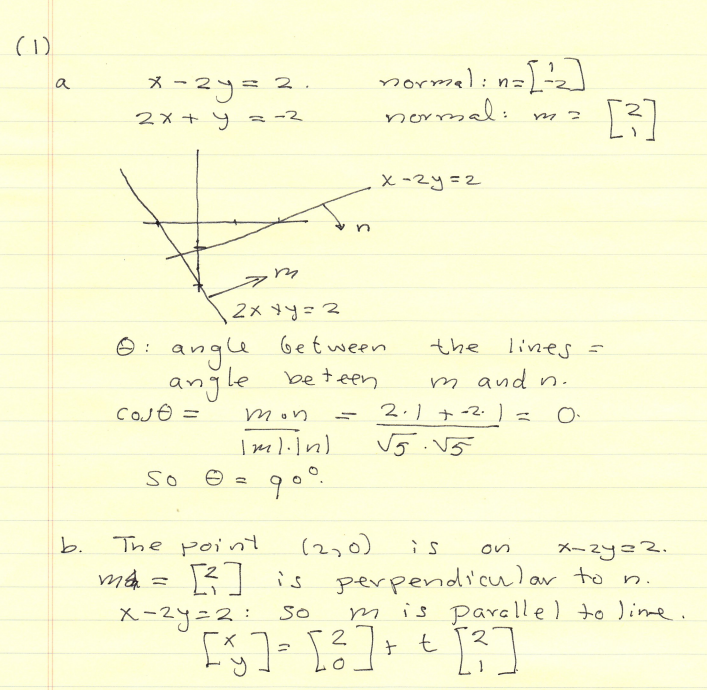 (1)
a x - 2y = 2. normal: n = [1 -2]
2x + y = -2 normal: m = [2 1]
x - 2y = 2
n
m
2x + y = 2
θ: angle between the lines =
angle beteen m and n.
cos θ = m·n / |m|·|n| = 2·1 + -2·1 / √5·√5 = 0.
So θ = 90°.
b. The point (2,0) is on x-2y=2.
m = [2 1] is perpendicular to n.
x-2y=2: so m is parallel to line.
[x y] = [2 0] + t [2 1]